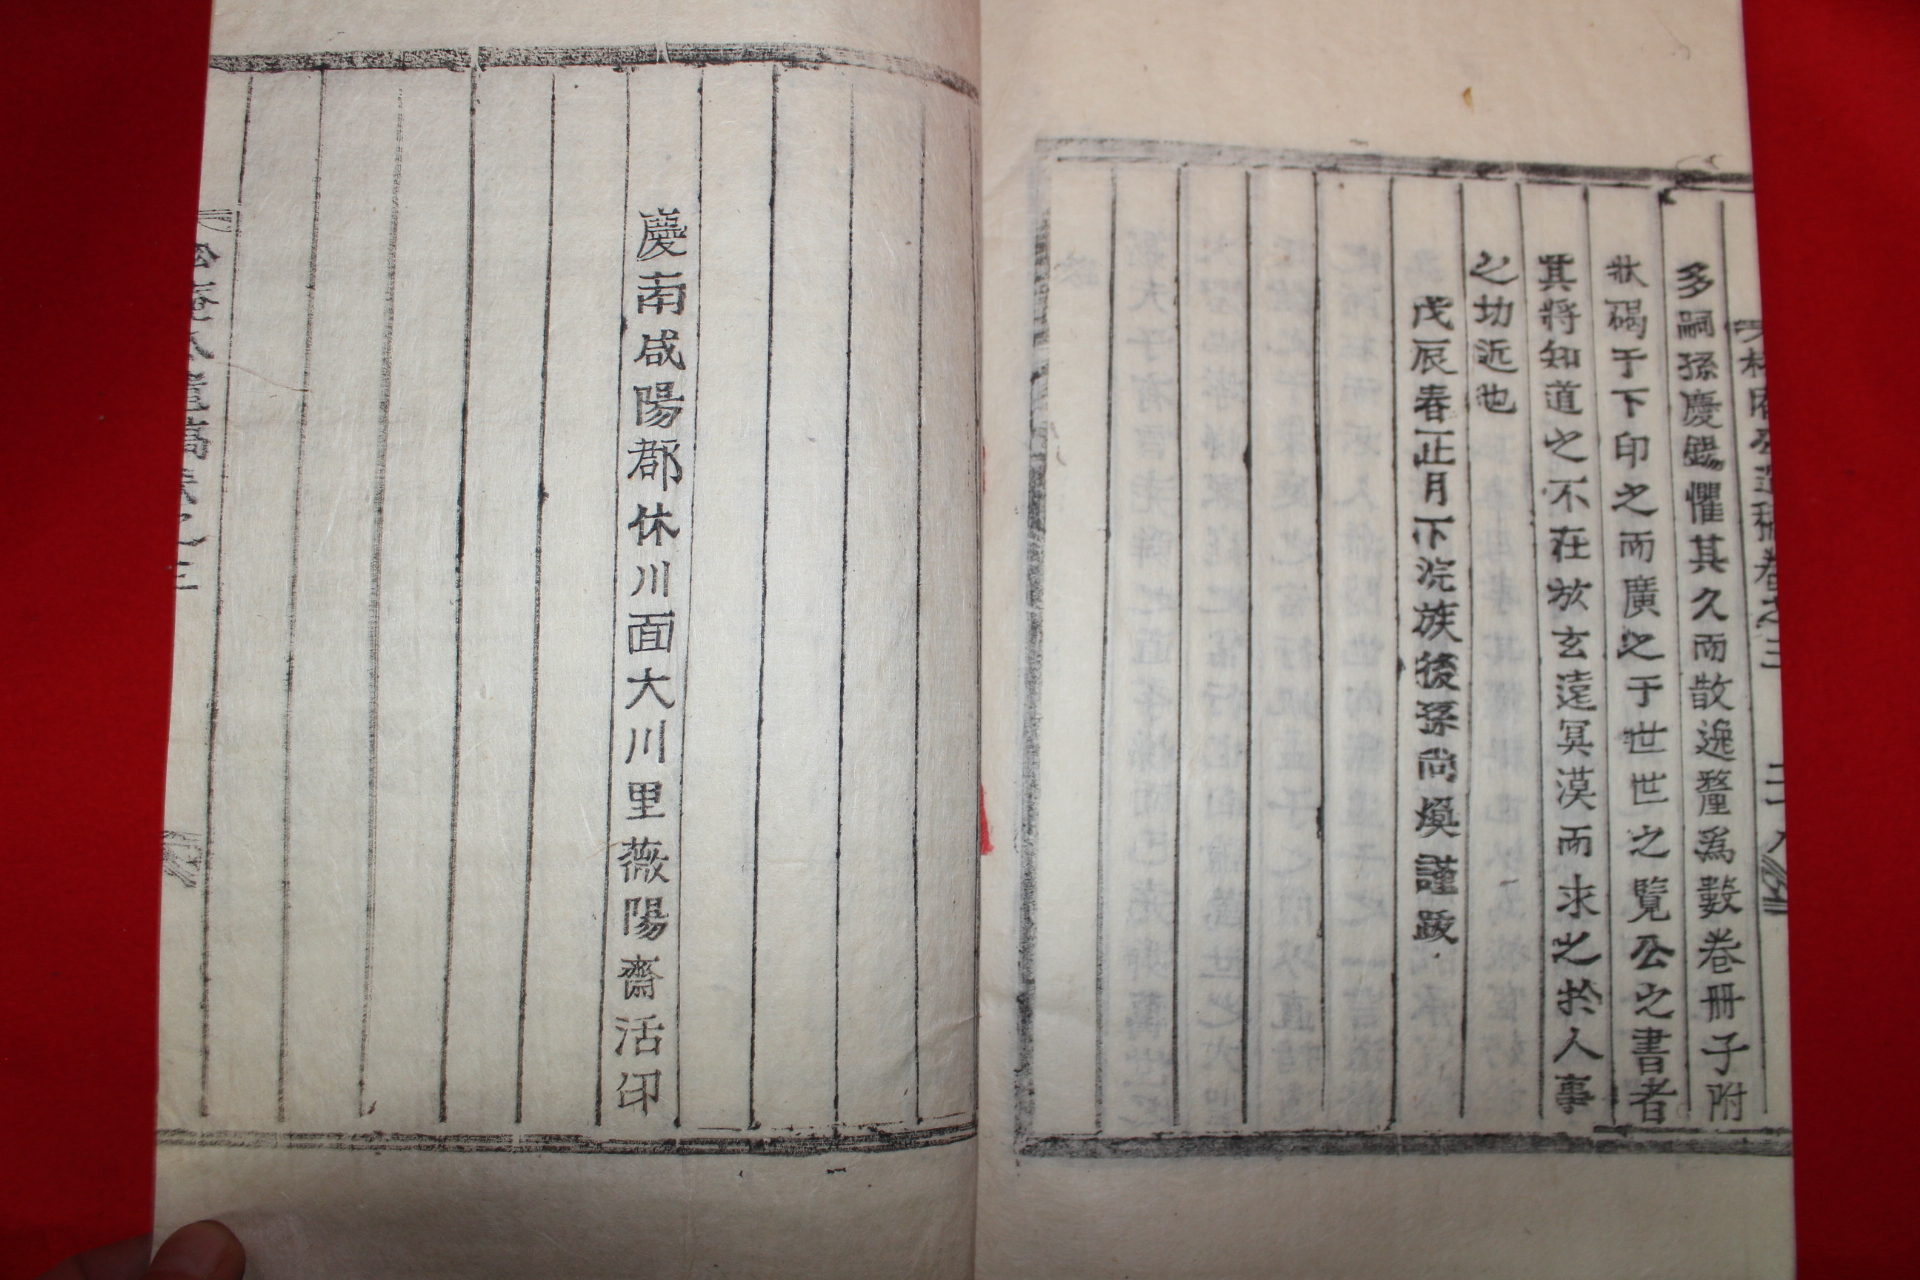 多嗣孫慶錫懼其久而散逸釐爲數卷冊子附
狀碣于下印之而廣之于世世之覽公之書者
其將知道之不在於玄遠冥漠而求之於人事
之功近也
戊辰春正月下浣族後孫尚煥謹跋
慶南咸陽郡休川面大川里薇陽齋活印